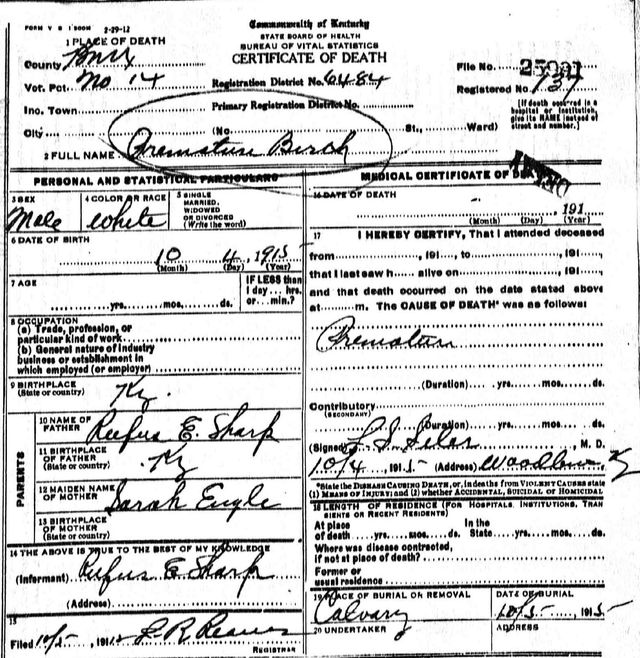 FORM V S 1 500M 2-29-12
Commonwealth of Kentucky
STATE BOARD OF HEALTH
BUREAU OF VITAL STATISTICS
CERTIFICATE OF DEATH
1 PLACE OF DEATH
County
Vot. Pct. No 14
Inc. Town
City
Registration District No. 6484
Primary Registration District No.
(No. St., Ward)
File No.
Registered No.
[If death occurred in a hospital or institution, give its NAME instead of street and number.]
2 FULL NAME Premature Birth
PERSONAL AND STATISTICAL PARTICULARS
3 SEX
Male
4 COLOR OR RACE
White
5 SINGLE
MARRIED,
WIDOWED
OR DIVORCED
(Write the word)
6 DATE OF BIRTH
10 4, 1915
(Month) (Day) (Year)
7 AGE
yrs. mos. ds.
IF LESS than
1 day... hrs.
or... min.?
8 OCCUPATION
(a) Trade, profession, or
particular kind of work
(b) General nature of industry
business or establishment in
which employed (or employer)
9 BIRTHPLACE
(State or country)
Ky.
PARENTS
10 NAME OF
FATHER
Rufus E. Sharp
11 BIRTHPLACE
OF FATHER
(State or country)
Ky
12 MAIDEN NAME
OF MOTHER
Sarah Engle
13 BIRTHPLACE
OF MOTHER
(State or country)
14 THE ABOVE IS TRUE TO THE BEST OF MY KNOWLEDGE
(Informant) Rufus E Sharp
(Address)
15
Filed 10/5-, 191
REGISTRAR
MEDICAL CERTIFICATE OF DEATH
16 DATE OF DEATH
, 191
(Month) (Day) (Year)
17 I HEREBY CERTIFY, That I attended deceased
from , 191 , to , 191 ,
that I last saw h alive on , 191 ,
and that death occurred on the date stated above
at m. The CAUSE OF DEATH* was as follows:
Premature
(Duration) yrs. mos. ds.
Contributory
(SECONDARY)
(Duration) yrs. mos. ds.
(Signed) , M. D.
10/4, 1915- (Address) Woodburn, Ky
*State the DISEASE CAUSING DEATH, or, in deaths from VIOLENT CAUSES state
(1) MEANS OF INJURY; and (2) whether ACCIDENTAL, SUICIDAL OR HOMICIDAL
18 LENGTH OF RESIDENCE (FOR HOSPITALS, INSTITUTIONS, TRAN
SIENTS OR RECENT RESIDENTS)
At place
of death yrs. mos. ds.
In the
State yrs. mos. ds.
Where was disease contracted,
if not at place of death?
Former or
usual residence
19 PLACE OF BURIAL OR REMOVAL
Calvary
DATE OF BURIAL
10/5-, 1915
20 UNDERTAKER
ADDRESS